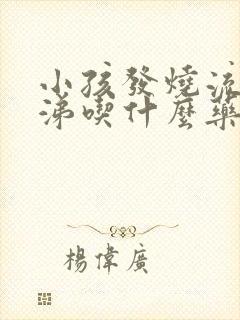 小孩發燒流
涕喫什麼藥
楊偉廣